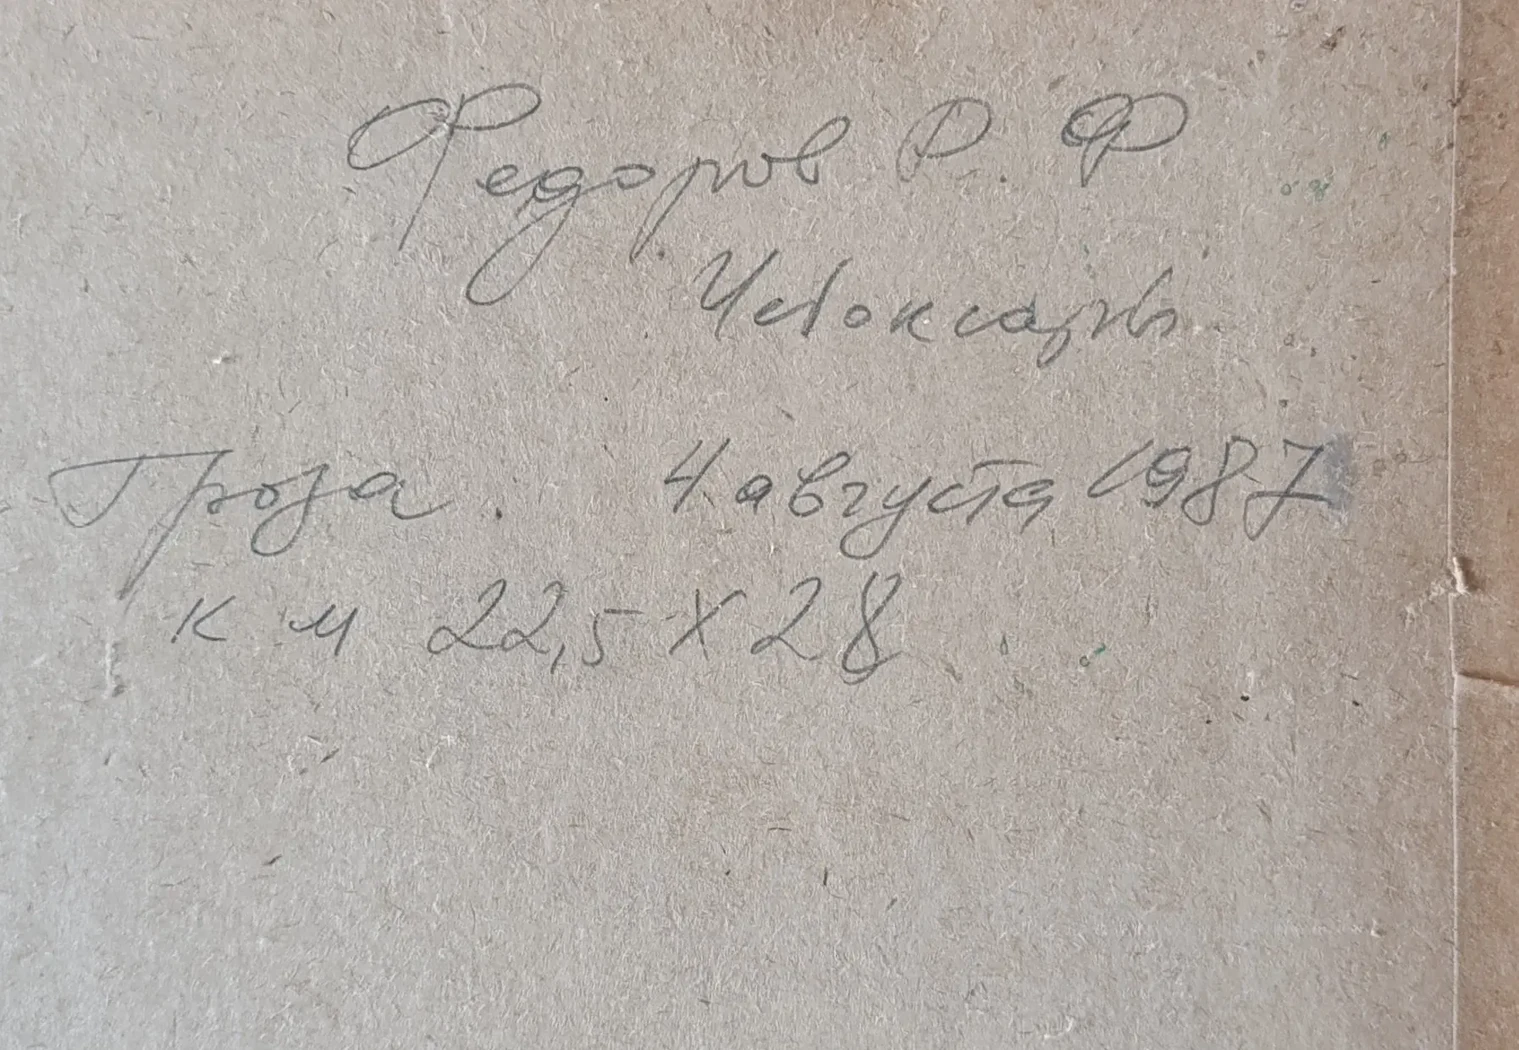 Федоров Р. Ф
Чебоксары
Гроза. 4 августа 1987
к м 22,5 х 28